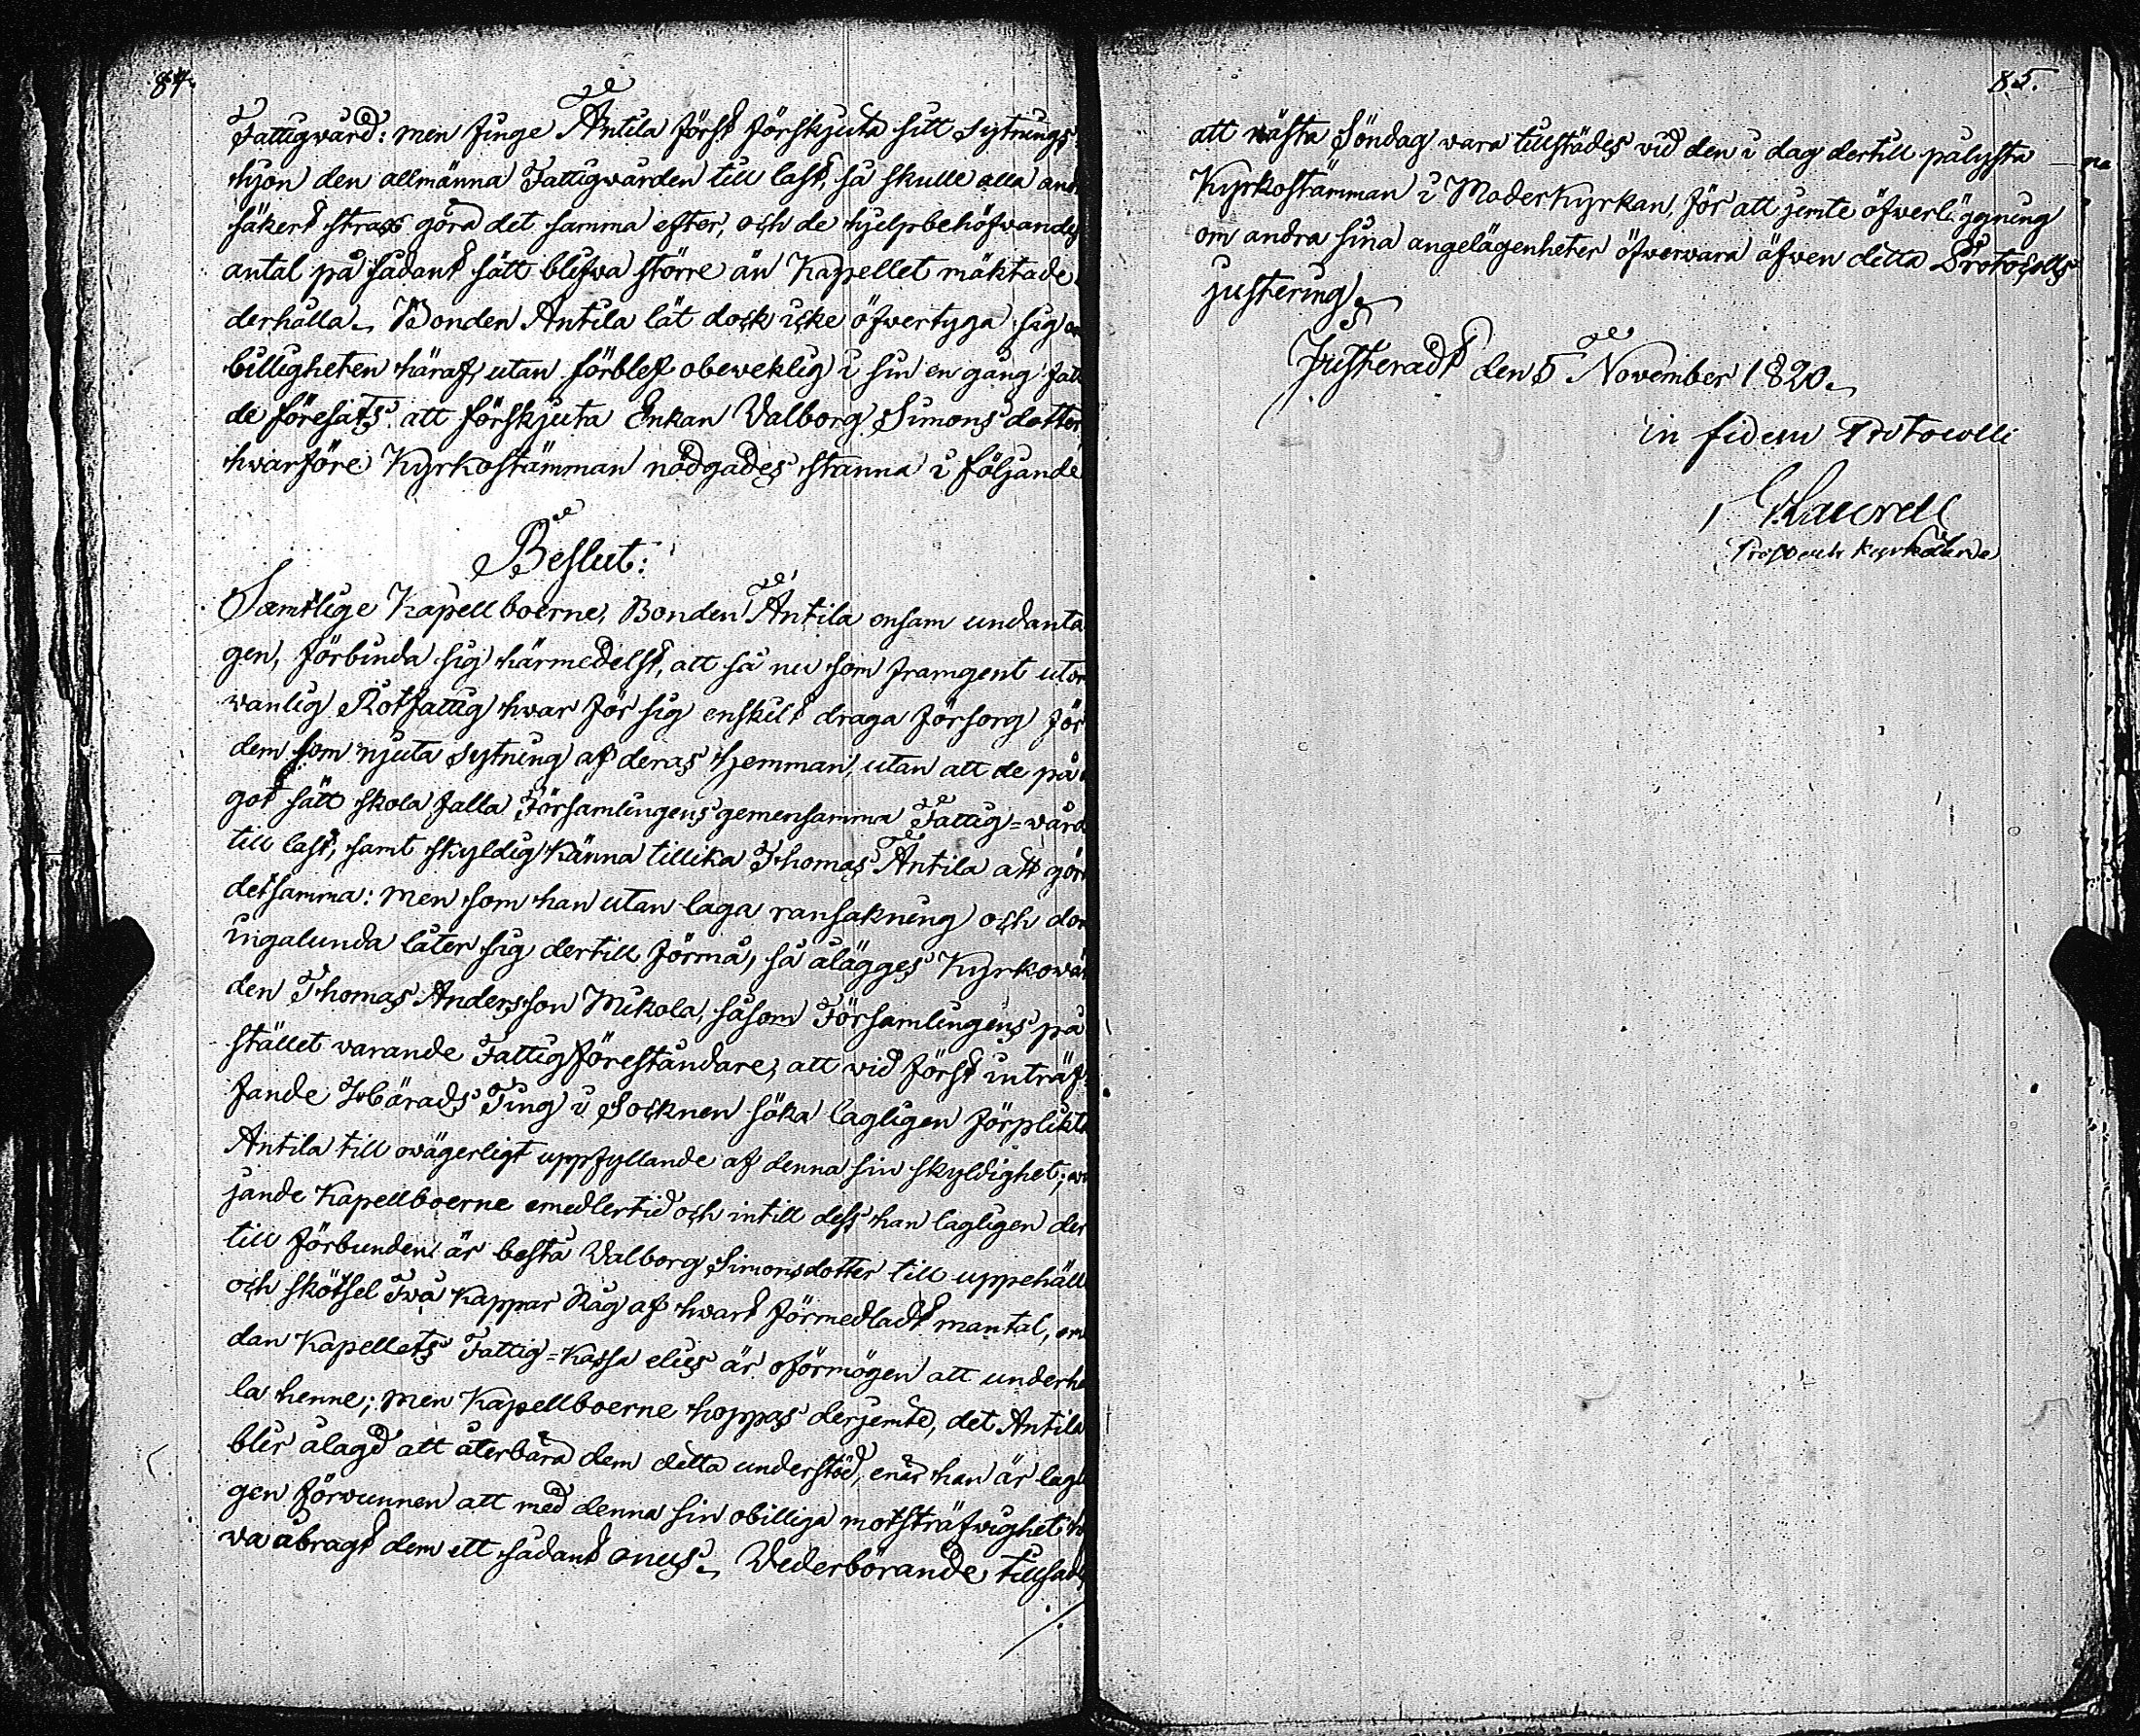 84.
Fattigwård: men finge Antila först förskjuta sitt Sytnings
hjon den allmänna Fattigwården till last, så skulle alla and
säkert strax göra det samma efter, och de hjelpbehöfwandes
antal på sådant sätt blifwa större än Kapellet mäktade
derhålla. Bonden Antila lät dock icke öfwertyga sig om
billigheten häraf, utan förblef obeweklig i sin en gång fatt
de föresats att förskjuta Enkan Walborg Simons dotter,
hwarföre Kyrkostämman nödgades stanna i följande
Beslut:
Samtlige Kapellboerne, Bonden Antila ensam undanta
gen, förbinda sig härmedelst, att så nu som framgent utom
wanlig Rotfattig hwar för sig enskilt draga försorg för
dem som njuta Sytning af deras hemman, utan att de på
got sätt skola falla Församlingens gemensamma Fattig=wård
till last, samt skyldig känna tillika Thomas Antila att göra
detsamma: men som han utan laga ransakning och dom
ingalunda låter sig dertill förmå, så ålägges Kyrkowär
den Thomas Andersson Mikola, såsom Församlingens på
stället varande Fattigföreståndare, att vid först inträf
fande Härads Ting i Socknen söka lagligen förplikta
Antila till owägerligt uppfyllande af denna sin skyldighet;
jande Kapellboerne emedlertid och intill dess han lagligen der
till förbunden är bestå Walborg Simonsdotter till uppehälle
och skötsel Två Kappar Råg af hwart förmedladt mantal, eme
dan Kapellets Fattig=Kassa elies är oförmögen att underhå
la henne; men Kapellboerne hoppas derjemte, det Antila
blir ålagd att återbära dem detta understöd, enär han är lagli
gen förvunnen att med denna sin obilliga motsträfwighet ha
va åbragt dem ett sådant onus. Wederbörande tillsades
85.
att nästa Söndag vara tillstädes vid den i dag dertill pålysta
Kyrkostämman i Moderkyrkan, för att jemte öfwerläggning
om andra sina angelägenheter öfwervara äfwen detta Protocolls
justering.
Justeradt den 5 November 1820.
in fidem Protocolli
Prost och Kyrkoherde